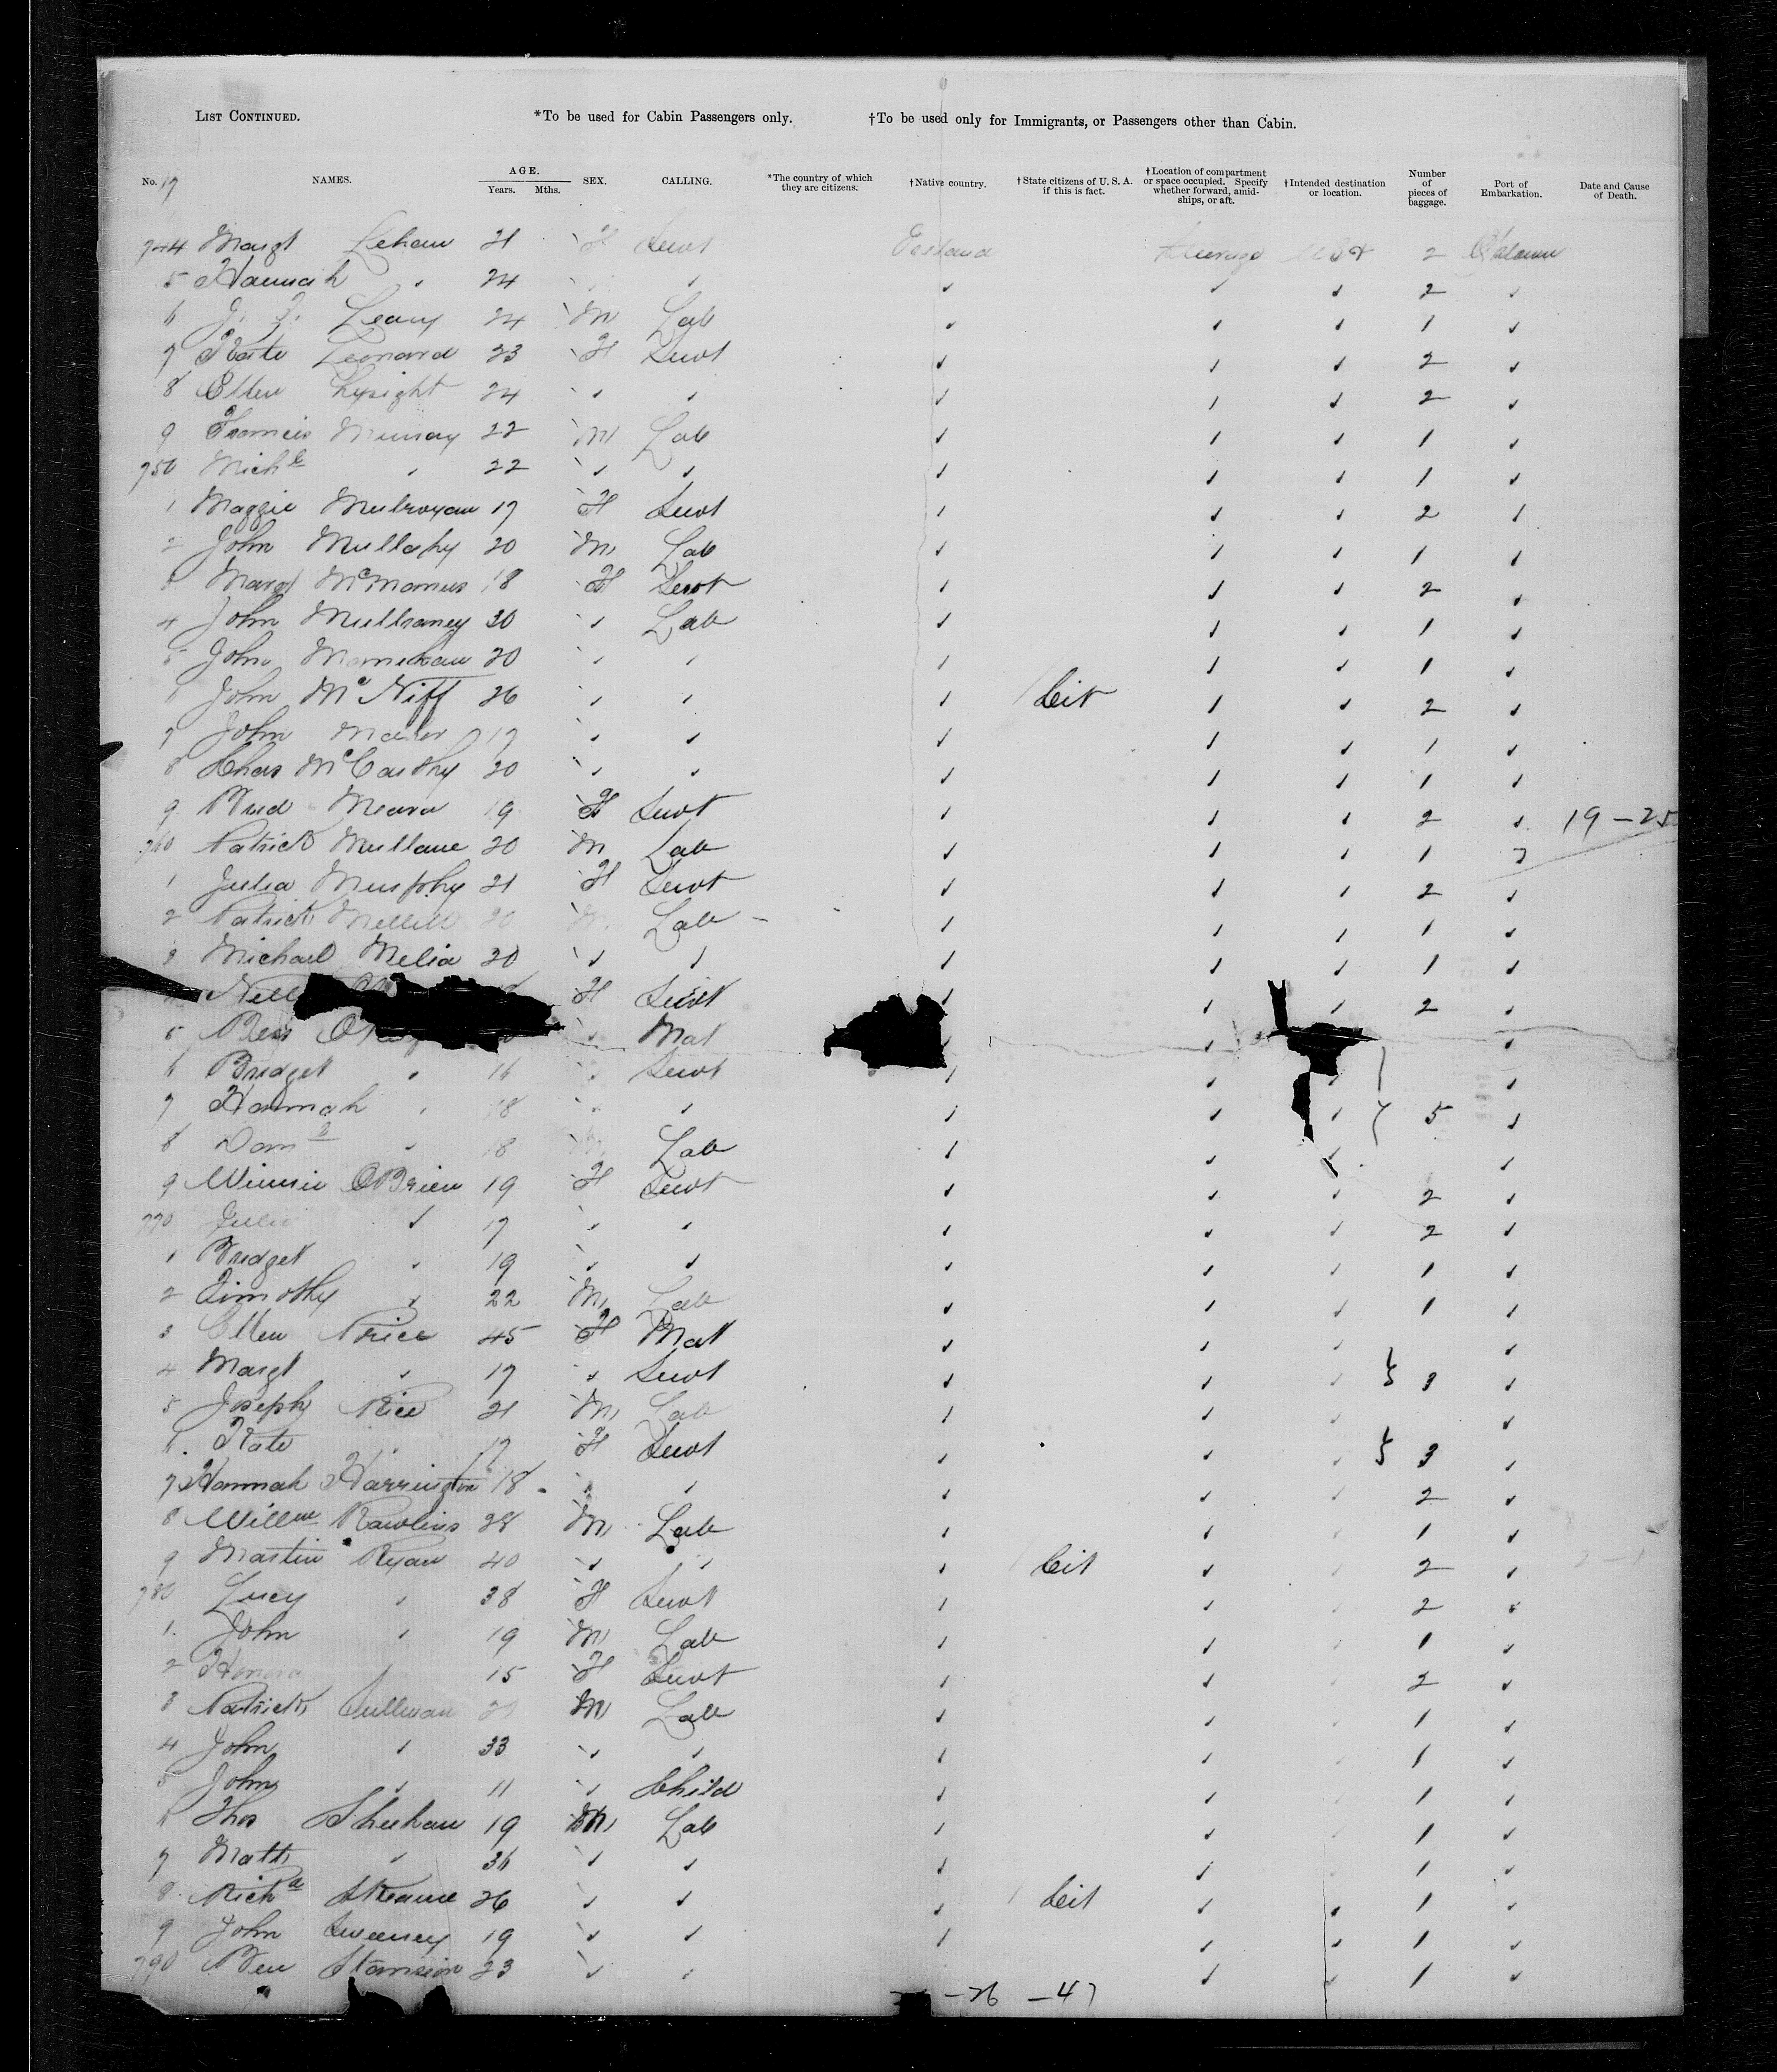 LIST CONTINUED. *To be used for Cabin Passengers only. †To be used only for Immigrants, or Passengers other than Cabin.
No. 17 NAMES. AGE. Years. Mths. SEX. CALLING. *The country of which they are citizens. †Native country. †State citizens of U. S. A. if this is fact. †Location of compartment or space occupied. Specify whether forward, amidships, or aft. †Intended destination or location. Number of pieces of baggage. Port of Embarkation. Date and Cause of Death.
744 Margt 21 F Servt Steerage USA 2
5 Hannah " 24 " " " " " 2 "
6 Leary 24 M Lab " " " 1 "
7 Kate Leonard 23 F Servt " " " 2 "
8 Ellen Lysight 24 " " " " " 2 "
9 Murray 22 M Lab " " " 1 "
750 Michl " 22 " " " " " 1 "
1 Maggie 17 F Servt " " " 2 "
2 John Mullahy 20 M Lab " " " 1 "
3 Margt McManus 18 F Servt " " " 2 "
4 John Mullraney 30 " Lab " " " 1 "
5 John 20 " " " " " 1 "
6 John McNiff 26 " " " Cit " " 2 "
7 John 17 " " " " " 1 "
8 Chas McCarthy 20 " " " " " 1 "
9 Brid Meara 19 F Servt " " " 2 " 19-25
760 Patrick Mullane 20 M Lab " " " 1 "
1 Julia Murphy 21 F Servt " " " 2 "
2 Patrick 20 M Lab - " " " 1 "
3 Michael Melia 30 " " " " " 1 "
F Servt " " 2 "
5 " Mat " " "
6 Bridget " 16 " Servt " " " "
7 Hannah " 18 " " " " " 5 "
8 " 18 Lab " " " "
9 Winnie OBrien 19 F Servt " " " 2 "
770 Julia " 17 " " " " " 2 "
1 Bridget " 19 " " " " " 1 "
2 Timothy " 22 M Lab " " " 1 "
3 Ellen Price 45 F Mat " " " "
4 Margt " 17 " Servt " " " 3 "
5 Joseph Rice 21 M Lab " " " "
6 Kate " 17 F Servt " " " 3 "
7 Hannah Harrington 18 " " " " " 2 "
8 Willm Rawlins 28 M Lab " " " 1 "
9 Martin Ryan 40 " " " Cit " " 2 "
780 Lucy " 38 F Servt " " " 2 "
1 John " 19 M Lab " " " 1 "
2 Honora " 15 F Servt " " " 2 "
3 Patrick Sullivan M Lab " " " 1 "
4 John " 33 " " " " " 1 "
5 John " 11 " Child " " " 1 "
6 Thos Sheehan 19 M Lab " " " 1 "
7 Matt " 36 " " " " " 1 "
8 Richd 26 " " " Cit " " 1 "
9 John Sweeney 19 " " " " " 1 "
790 Ben 23 " " " " 1 "
-26 -47